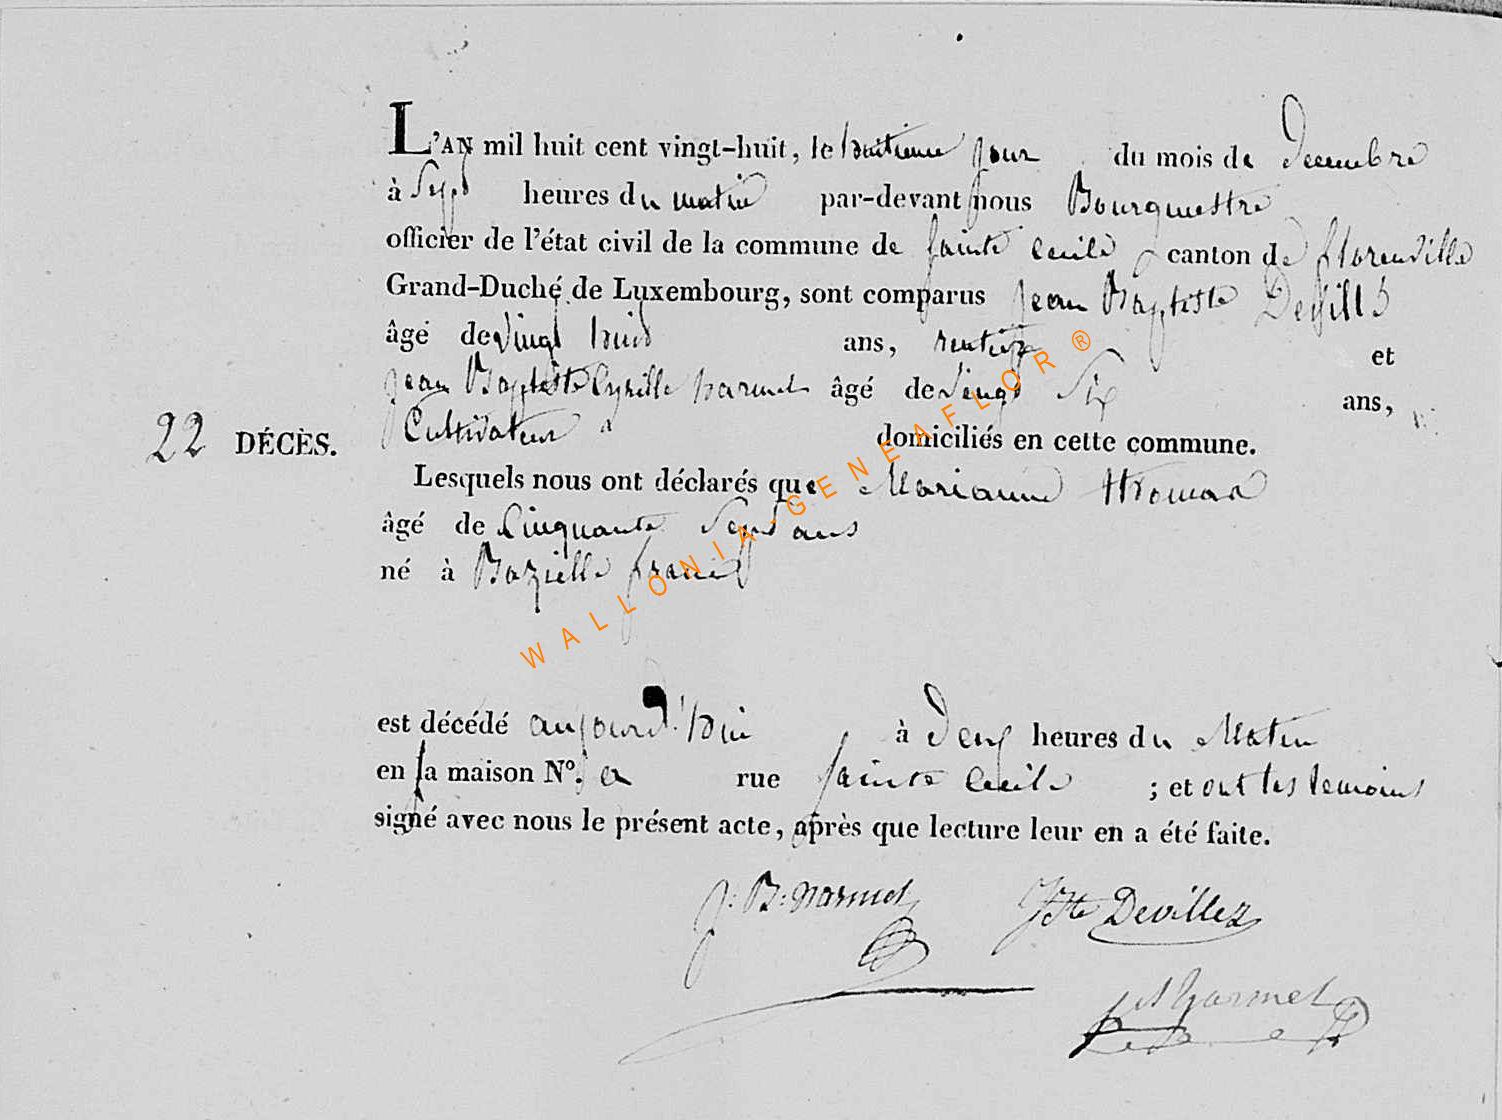 L'AN mil huit cent vingt-huit, le huitieme jour du mois de Decembre
à Sept heures du matin par-devant nous Bourgmestre
officier de l'état civil de la commune de Sainte Cecile canton de florenville
Grand-Duché de Luxembourg, sont comparus Jean Baptiste Devillé
âgé de vingt huit ans, rentier et
Jean Baptiste Cyrille harmel âgé de vingt Six ans,
Cultivateur domiciliés en cette commune.
22 DÉCÈS.
Lesquels nous ont déclarés que Marianne Thomas
âgé de Cinquante Sept ans
né à Bazielle france
est décédé aujourd'hui à Deux heures du Matin
en la maison N°. a rue Sainte Cecile ; et ont les temoins
signé avec nous le présent acte, après que lecture leur en a été faite.
J: B: harmel Jbte Devillez
harmel
WALLONIA-GENEAFLOR®